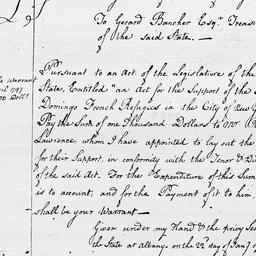 To Gerard Bancker Esqr. Treasu
of the said State. —
Pursuant to an Act of the Legislature of the
State, Entitled "an Act for the Support of the
Domingo French Refugees in the City of New Y
Pay the Sum of one Thousand Dollars to Mr.
Lawrence whom I have appointed to lay out the
for their Support, in conformity with the Tenor &
of the said Act. For the Expenditure of this Sum
is to account, and for the Payment of it to him
shall be your Warrant —
Given under my Hand & the privy Sea
the State at Albany, on the 22d. day of Jany.
Warrant
1797